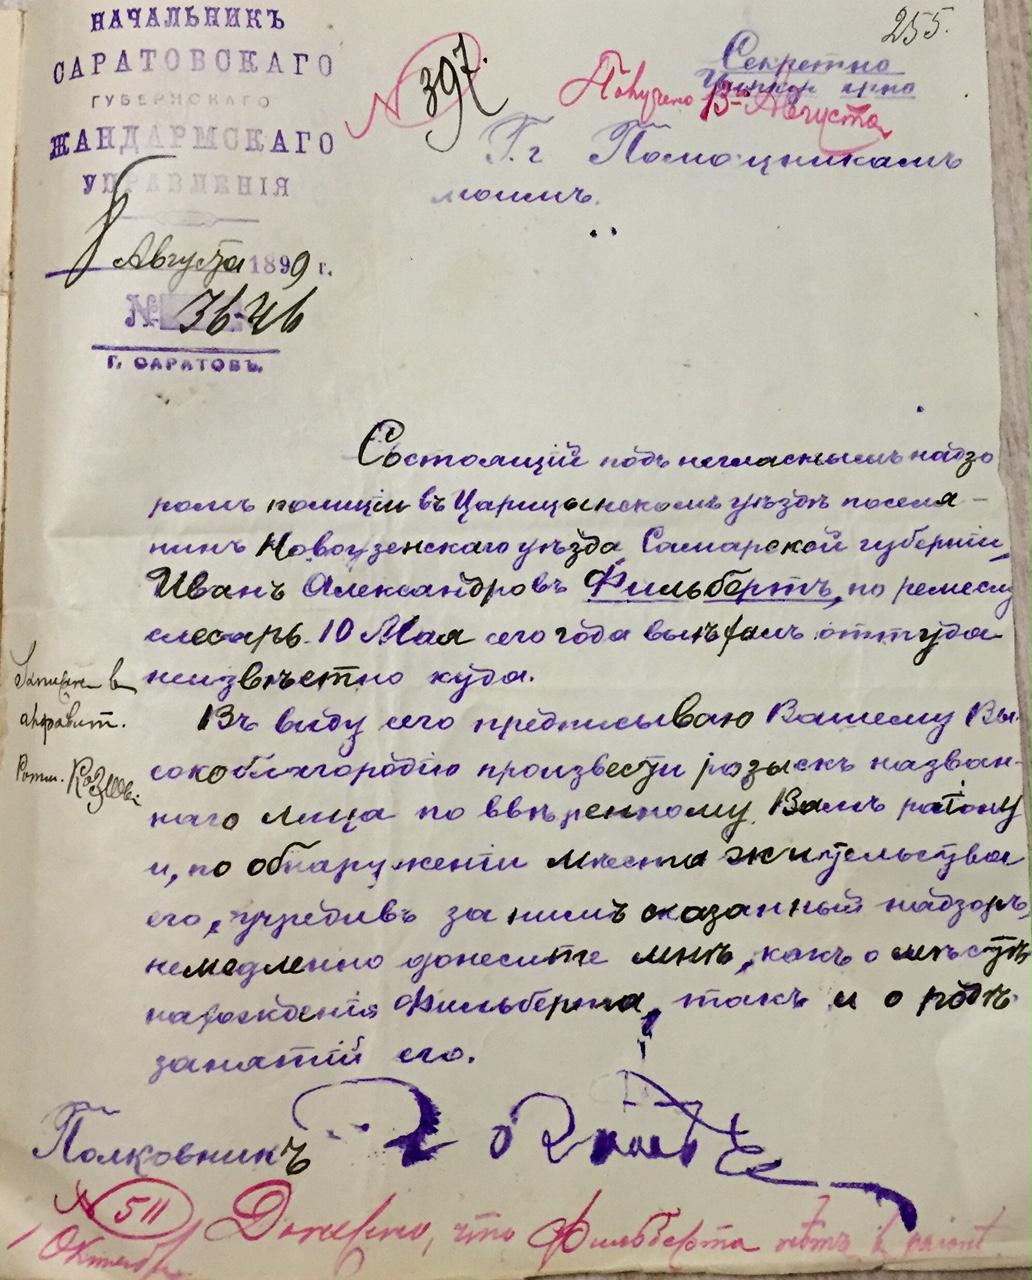 НАЧАЛЬНИКЪ
САРАТОВСКАГО
ГУБЕРНСКАГО
ЖАНДАРМСКАГО
УПРАВЛЕНІЯ
8 Августа 1899 г.
№ 3646
Г. САРАТОВЪ.
255.
№ 397.
Секретно
Циркулярно
Получено 13 Августа
Г.г. Помощникамъ
моимъ.
Состоящій подъ негласнымъ надзо
ромъ полиціи въ Царицынскомъ уѣздѣ поселя-
нинъ Новоузенскаго уѣзда Самарской губерніи,
Иванъ Александровъ Фильбертъ, по ремеслу
слесарь 10 Мая сего года выѣхалъ оттуда
неизвѣстно куда.
Въ виду сего предписываю Вашему Вы-
сокоблагородію произвести розыскъ назван-
наго лица по ввѣренному Вамъ раіону
и, по обнаруженіи мѣста жительства
его, учредивъ за нимъ сказанный надзоръ,
немедленно донесите мнѣ, какъ о мѣстѣ
нарожденія Фильберта, такъ и о родѣ
занятій его.
Записан в
алфавит.
Ротм.
Полковникъ
№ 511
1 Октября
Донесено, что Фильберта нѣтъ в раіонѣ